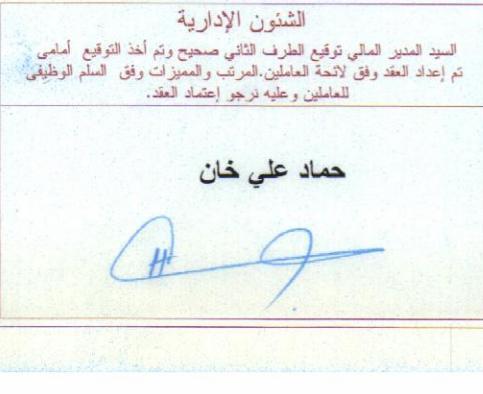 الشئون الإدارية
السيد المدير المالي توقيع الطرف الثاني صحيح وتم أخذ التوقيع أمامى
تم إعداد العقد وفق لائحة العاملين.المرتب والمميزات وفق السلم الوظيفى
للعاملين وعليه نرجو إعتماد العقد.
حماد علي خان